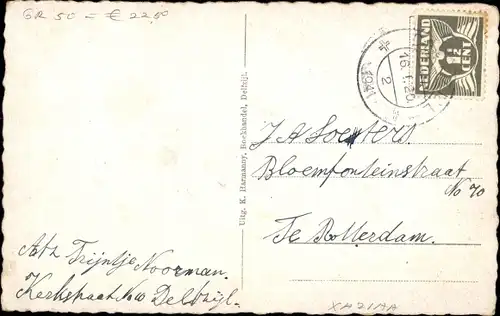 GR 50 = € 22.50
NEDERLAND
1½
CENT
16.1.20
2
1941
J A Soeters.
Bloemfonteinstraat
No 70
Te Rotterdam.
Uitg. K. Harmanny, Boekhandel, Delfzijl.
Afz Trijntje Noorman.
Kerkstraat No 10 Delfzijl.
XA21AA